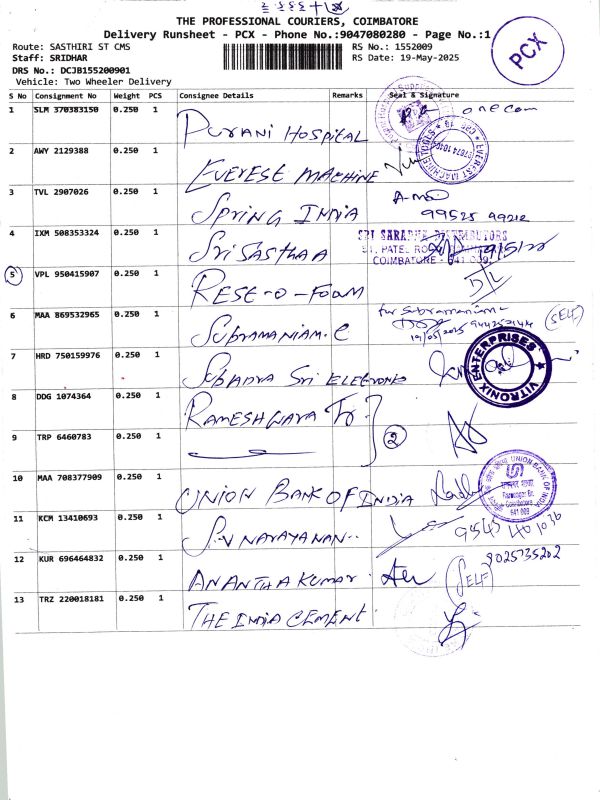 THE PROFESSIONAL COURIERS, COIMBATORE
Delivery Runsheet - PCX - Phone No.:9047080280 - Page No.:1
PCX
Route: SASTHIRI ST CMS
RS No.: 1552009
Staff: SRIDHAR
RS Date: 19-May-2025
DRS No.: DCJB155200901
Vehicle: Two Wheeler Delivery
S No Consignment No Weight PCS Consignee Details Remarks Seal & Signature
1 SLM 370383150 0.250 1 PURANI HOSPITAL
2 AWY 2129388 0.250 1 EVEREST MACHINE
EVEREST MACHINE TOOLS
3 TVL 2907026 0.250 1 SPRING INDIA 99525 99212
4 IXM 508353324 0.250 1 SRI SASTHAA
SRI SARADHA DISTRIBUTORS
COIMBATORE - 641 009
5 VPL 950415907 0.250 1 RESE-O-FOAM
D/L
6 MAA 869532965 0.250 1 SUBRAMANIAM. C
for Subramaniam
19/05/2025
(SELF)
7 HRD 750159976 0.250 1 SUBADRA SRI ELECTRONO
VITRONIX ENTERPRISES
8 DDG 1074364 0.250 1 RAMESHWARA Tr.
2
9 TRP 6460783 0.250 1
10 MAA 708377909 0.250 1 UNION BANK OF INDIA
UNION BANK OF INDIA
Coimbatore
641 009
11 KCM 13410693 0.250 1 NARAYANAN
12 KUR 696464832 0.250 1 ANANTHA KUMAR
(SELF)
8025735202
13 TRZ 220018181 0.250 1 THE INDIA CEMENT